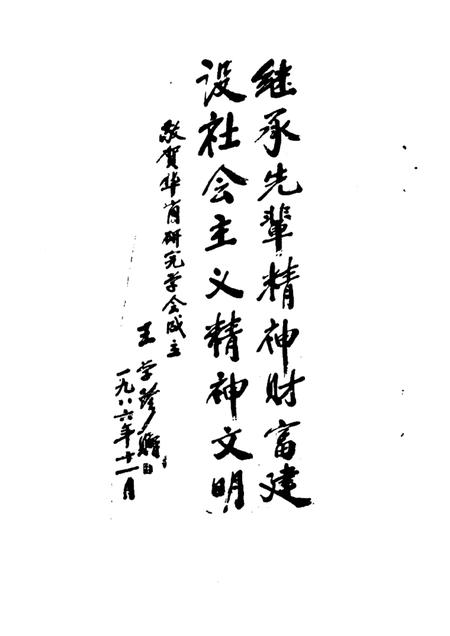 继承先辈精神财富建
设社会主义精神文明
敬贺华岗研究学会成立
王学
一九八六年十一月